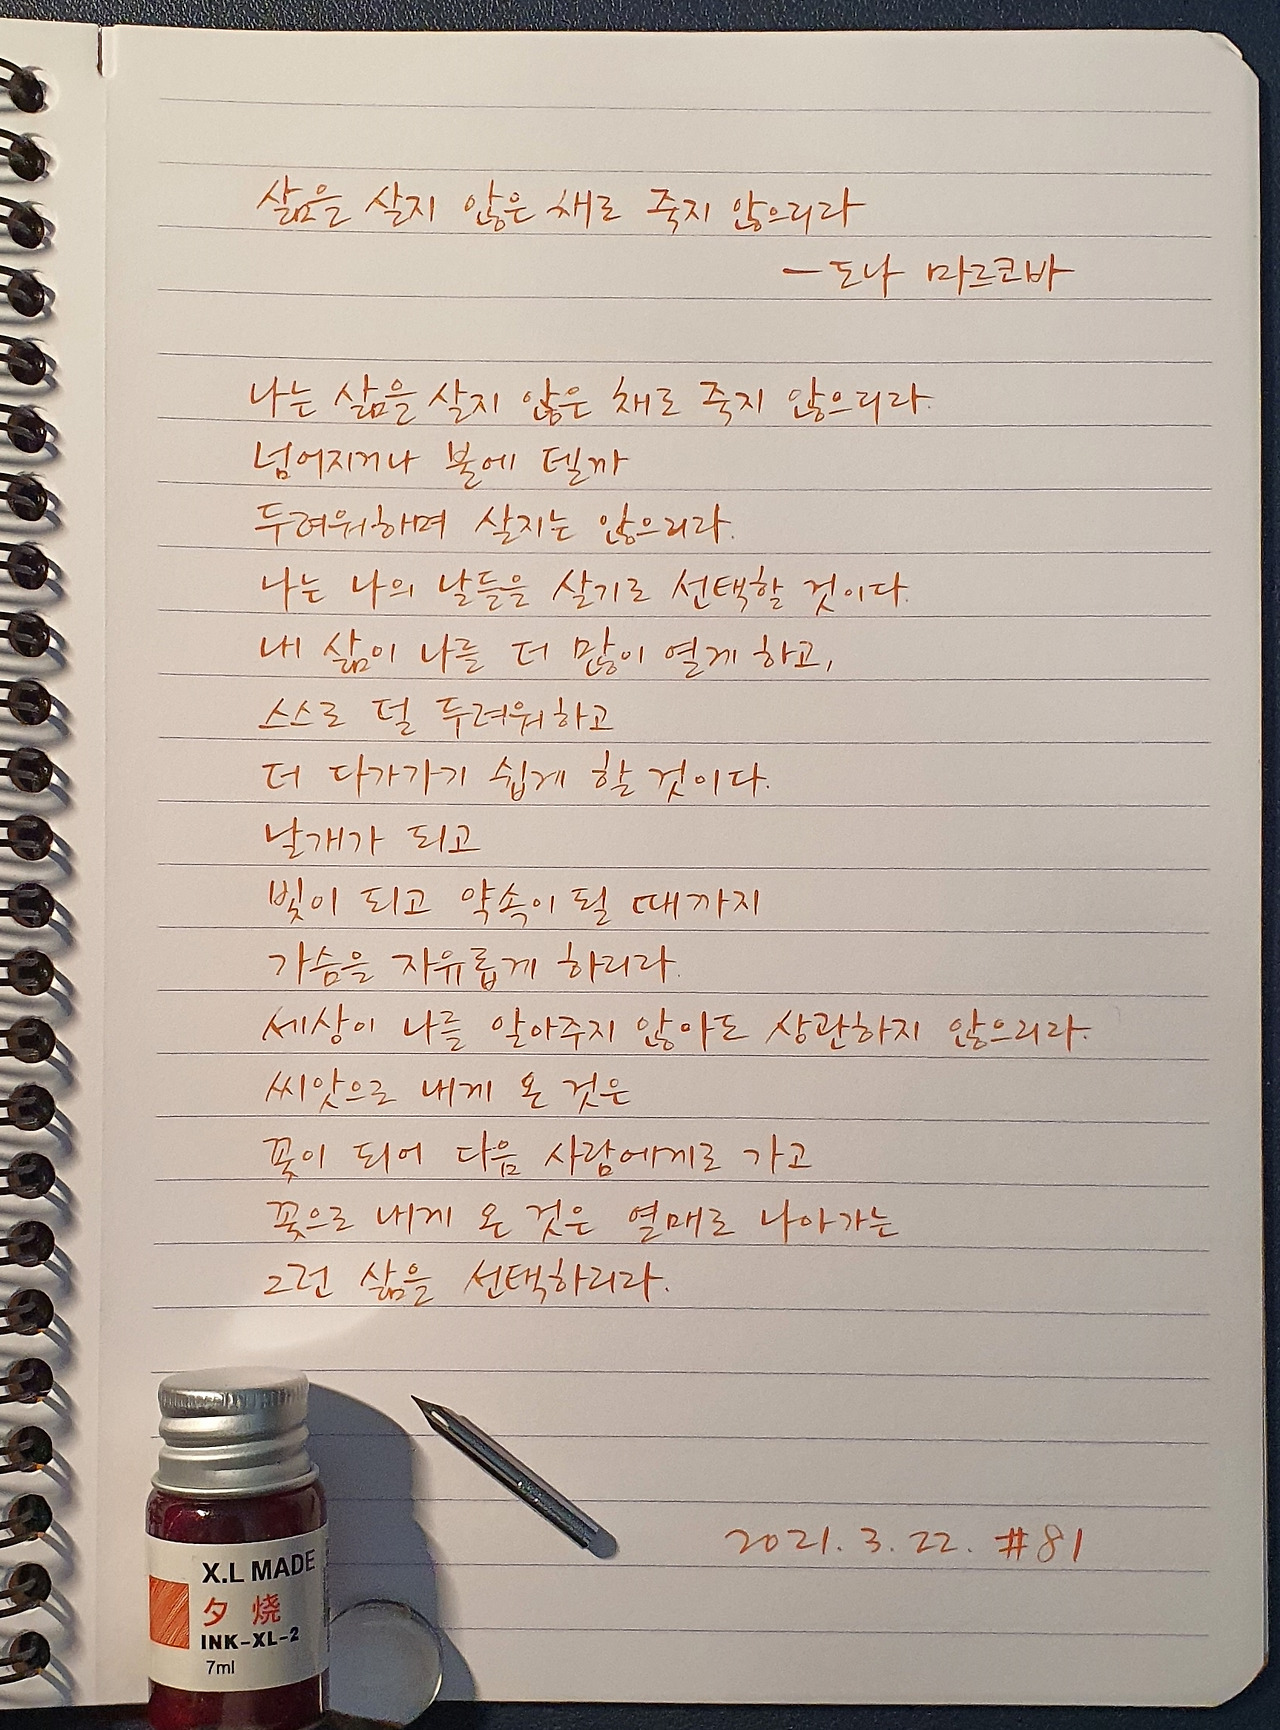 삶을 살지 않은 채로 죽지 않으리라
- 도나 마르코바
나는 삶을 살지 않은 채로 죽지 않으리라.
넘어지거나 불에 델까
두려워하며 살지는 않으리라.
나는 나의 날들을 살기로 선택할 것이다.
내 삶이 나를 더 많이 열게 하고,
스스로 덜 두려워하고
더 다가가기 쉽게 할 것이다.
날개가 되고
빛이 되고 약속이 될 때까지
가슴을 자유롭게 하리라.
세상이 나를 알아주지 않아도 상관하지 않으리라.
씨앗으로 내게 온 것은
꽃이 되어 다음 사람에게로 가고
꽃으로 내게 온 것은 열매로 나아가는
그런 삶을 선택하리라.
2021. 3. 22. #81
X.L MADE
夕 烧
INK-XL-2
7ml